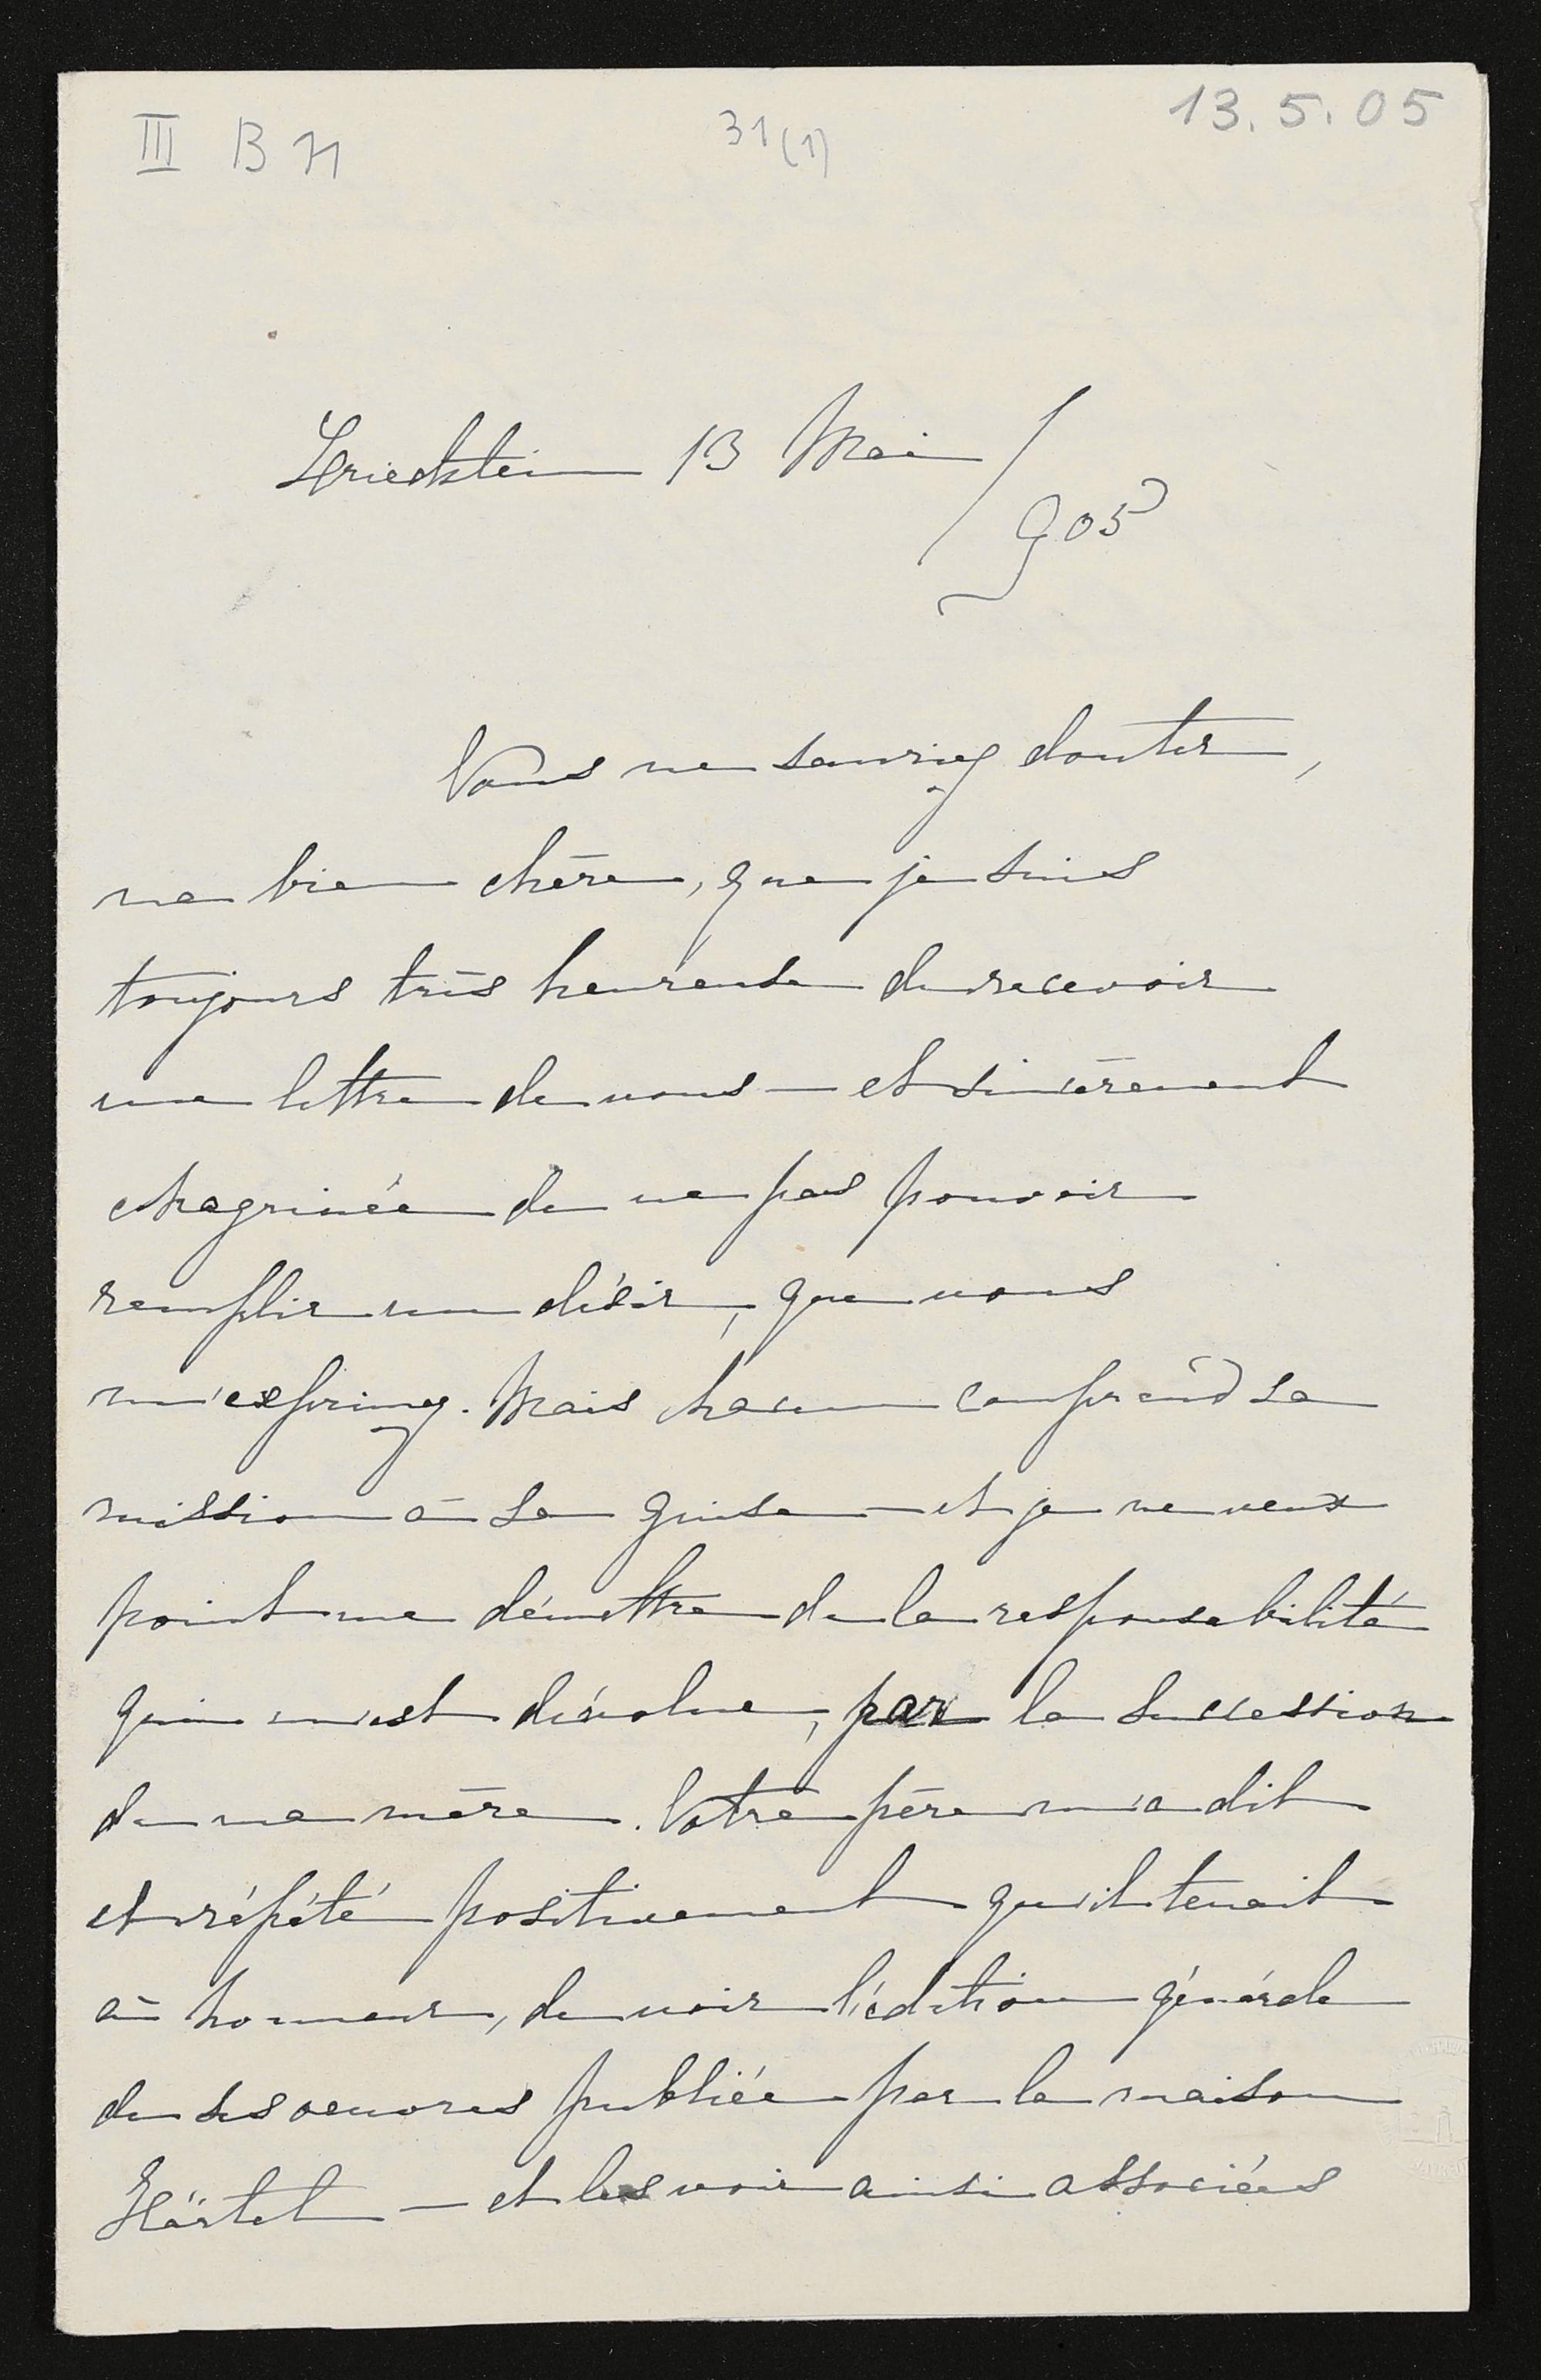 III B H
31(1)
13.5.05
Friedstein 13 Mai
905
Vous ne sauriez douter,
ma bien chère, que je suis
toujours très heureuse de recevoir
une lettre de vous — et sincèrement
chagrinée de ne pas pouvoir
remplir un désir, que vous
m'exprimez. Mais chacun comprend sa
mission à sa guise — et je ne veux
point me démettre de la responsabilité
qui m'est dévolue, par la succession
de ma mère. Votre père m'a dit
et répété positivement qu'il tenait
à honneur, de voir l'édition générale
de ses oeuvres publiée par la maison
Härtel — et les voir ainsi associées